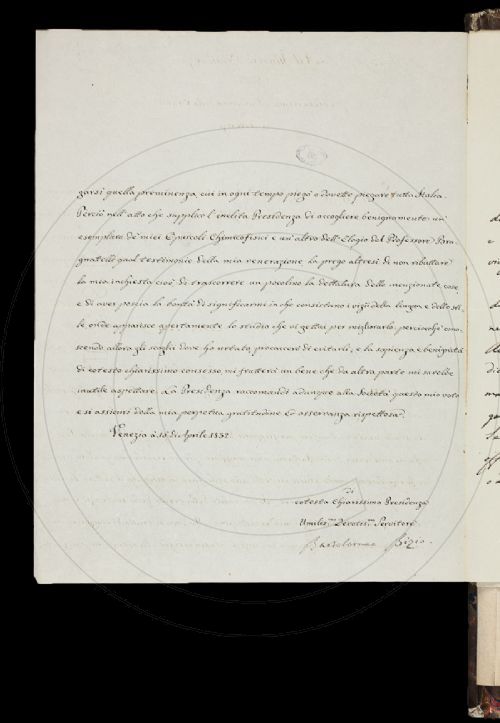 garsi quella preminenza, cui in ogni tempo piegò o dovette piegare tutta Italia.
Perciò nell'atto che supplico l'inclita Presidenza di accogliere benignamente un
esemplare de' miei Opuscoli Chimicofisici e un altro dell'Elogio del Professore Bru-
gnatelli qual testimonio della mia venerazione, la prego altresì di non ributtare
la mia inchiesta cioè di trascorrere un pocolino la dettatura delle menzionate cose
e di aver poscia la bontà di significarmi in che consistano i vizii della lingua e dello sti-
le, onde apparisce apertamente lo studio che vi gettai per migliorarlo, perciocchè cono-
scendo allora gli scogli dove ho urtato procaccerò di evitarli, e la sapienza e benignità
di cotesto chiarissimo consesso mi frutterà un bene che da altra parte mi sarebbe
inutile aspettare. La Presidenza raccomandi adunque alla Società questo mio voto
e si assicuri della mia perpetua gratitudine ed osservanza rispettosa.
Venezia à 15 di Aprile 1832.
di
cotesta Chiarissima Presidenza
Umiliss.mo Devotis.mo Servitore
Bartolomeo Bizio.